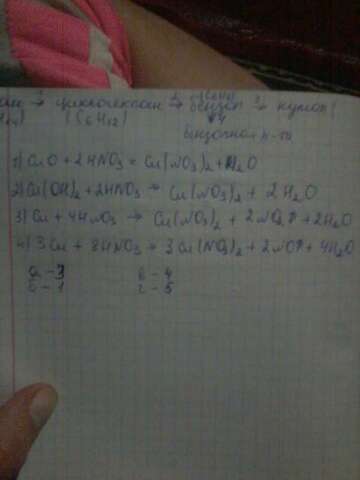 циклогексан → бензол → кумол
(C6H12)
бензойная к-та
1) CuO + 2HNO3 = Cu(NO3)2 + H2O
2) Cu(OH)2 + 2HNO3 → Cu(NO3)2 + 2H2O
3) Cu + 4HNO3 → Cu(NO3)2 + 2NO2↑ + 2H2O
4) 3Cu + 8HNO3 → 3Cu(NO3)2 + 2NO↑ + 4H2O
а - 3 в - 4
б - 1 г - 5